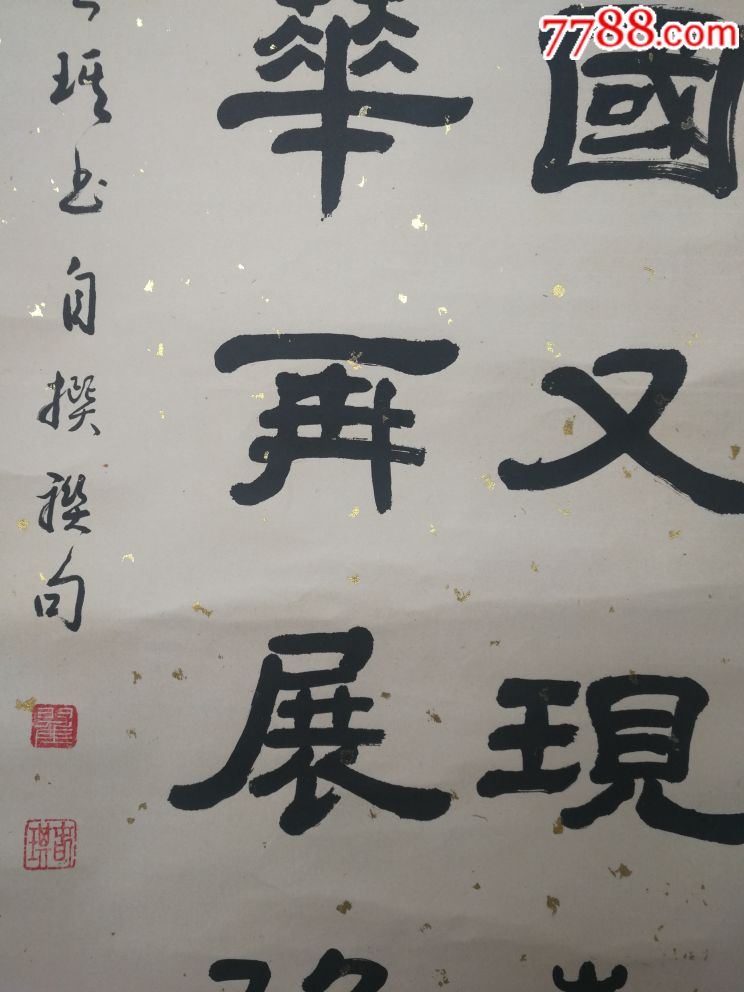 7788.com
國又現
華再展
琪书自撰联句